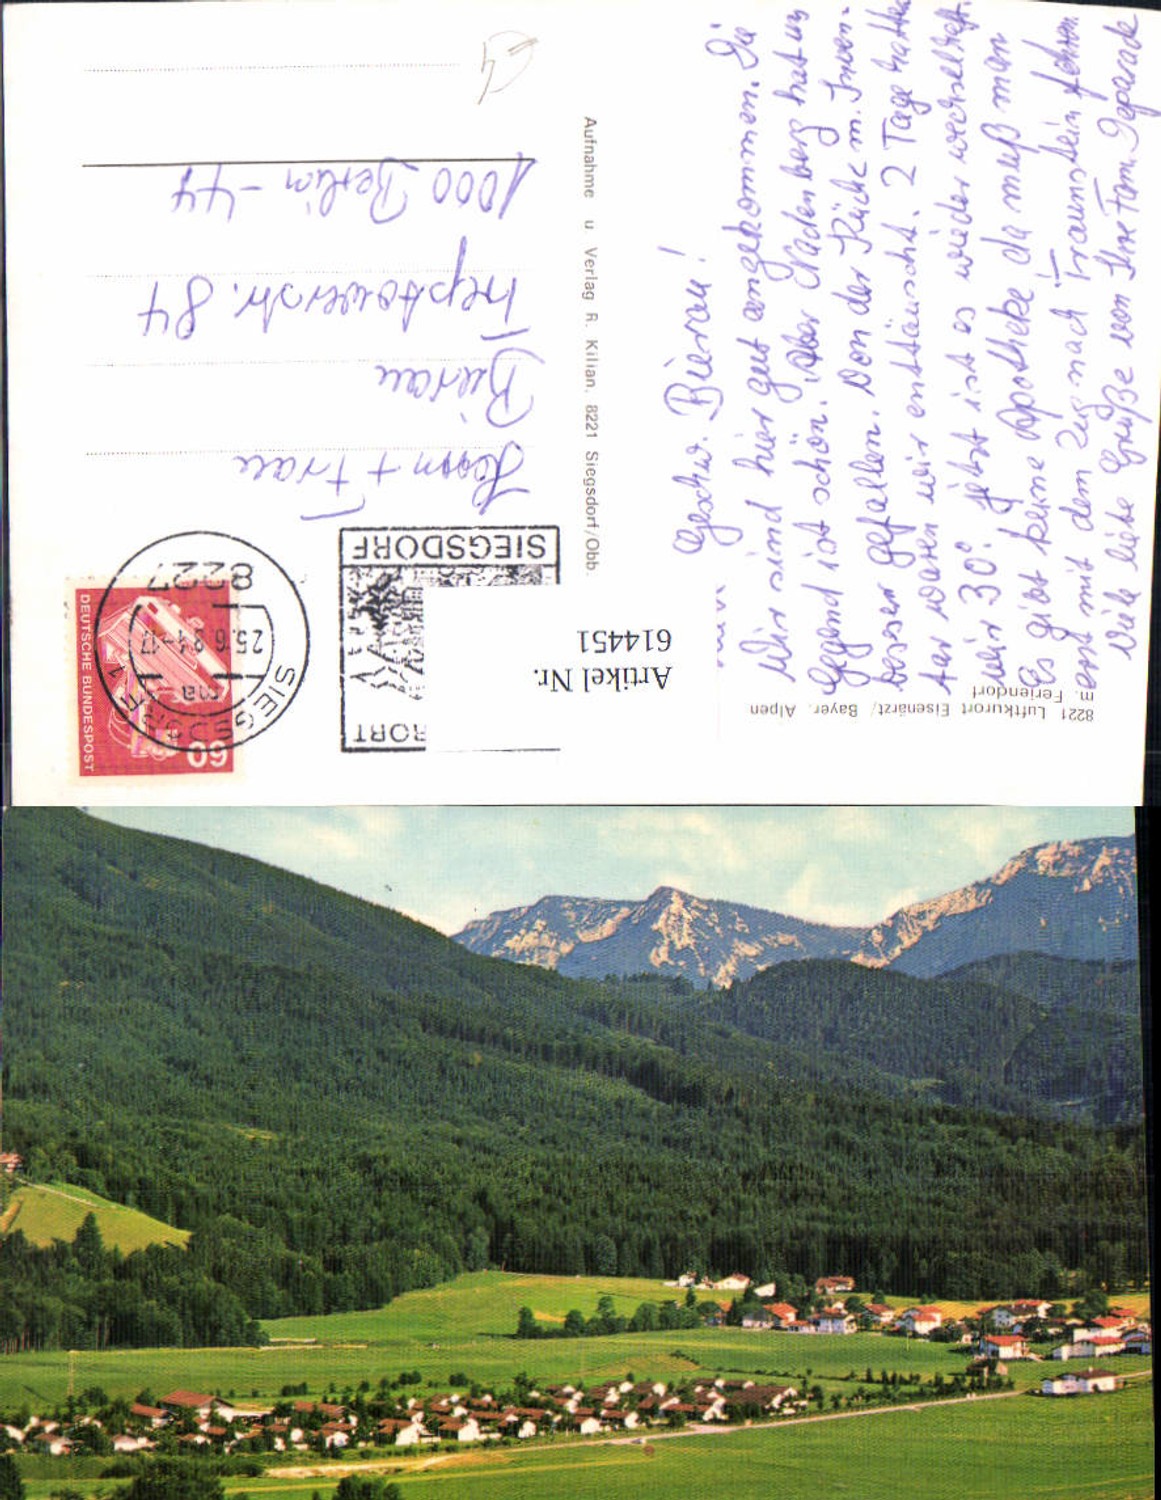 8221 Luftkurort Eisenärzt / Bayer. Alpen
m. Feriendorf
Geschw. Bierau!
Wir sind hier gut angekommen. Die
Gegend ist schön. Aber Wadenberg hat uns
besser gefallen. Von der Küche m. Inven-
tar waren wir enttäuscht. 2 Tage hatten
wir 30° jetzt ist es wieder wechselhaft.
Es gibt keine Apotheke da muß man
erst mit dem Zug nach Traunstein fahren
Viele liebe Grüße von Ihre Fam.
Aufnahme u Verlag R. Kilian, 8221 Siegsdorf/Obb.
Artikel Nr.
614451
ORT
SIEGSDORF
60
DEUTSCHE BUNDESPOST
SIEGSDORF 1
ma
25.6.84-17
8227
Herrn + Frau
Bierau
Treptowerstr. 84
1000 Berlin - 44